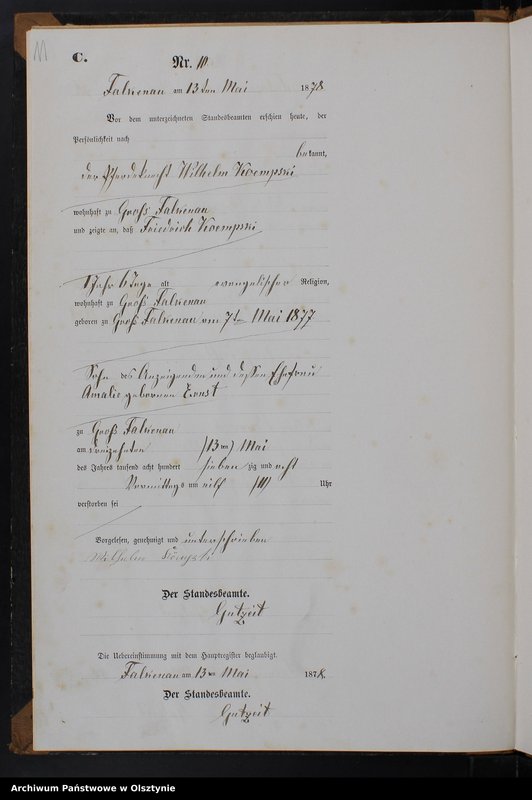 11
C.
Nr. 10
Falkenau am 13ten Mai 1878
Vor dem unterzeichneten Standesbeamten erschien heute, der
Persönlichkeit nach
bekannt,
der Pferdeknecht Wilhelm Koempski
wohnhaft zu Groß Falkenau
und zeigte an, daß Friedrich Koempski
1 Jahr 6 Tage alt evangelischer Religion,
wohnhaft zu Groß Falkenau
geboren zu Groß Falkenau am 7ten Mai 1877
Sohn des Anzeigenden und dessen Ehefrau
Amalie geborenen Ernst
zu Groß Falkenau
am dreizehnten (13ten) Mai
des Jahres tausend acht hundert siebenzig und acht
Vormittags um eilf (11) Uhr
verstorben sei
Vorgelesen, genehmigt und unterschrieben
Wilhelm
Der Standesbeamte.
Gutzeit
Die Uebereinstimmung mit dem Hauptregister beglaubigt.
Falkenau am 13ten Mai 1878.
Der Standesbeamte.
Gutzeit
Archiwum Państwowe w Olsztynie